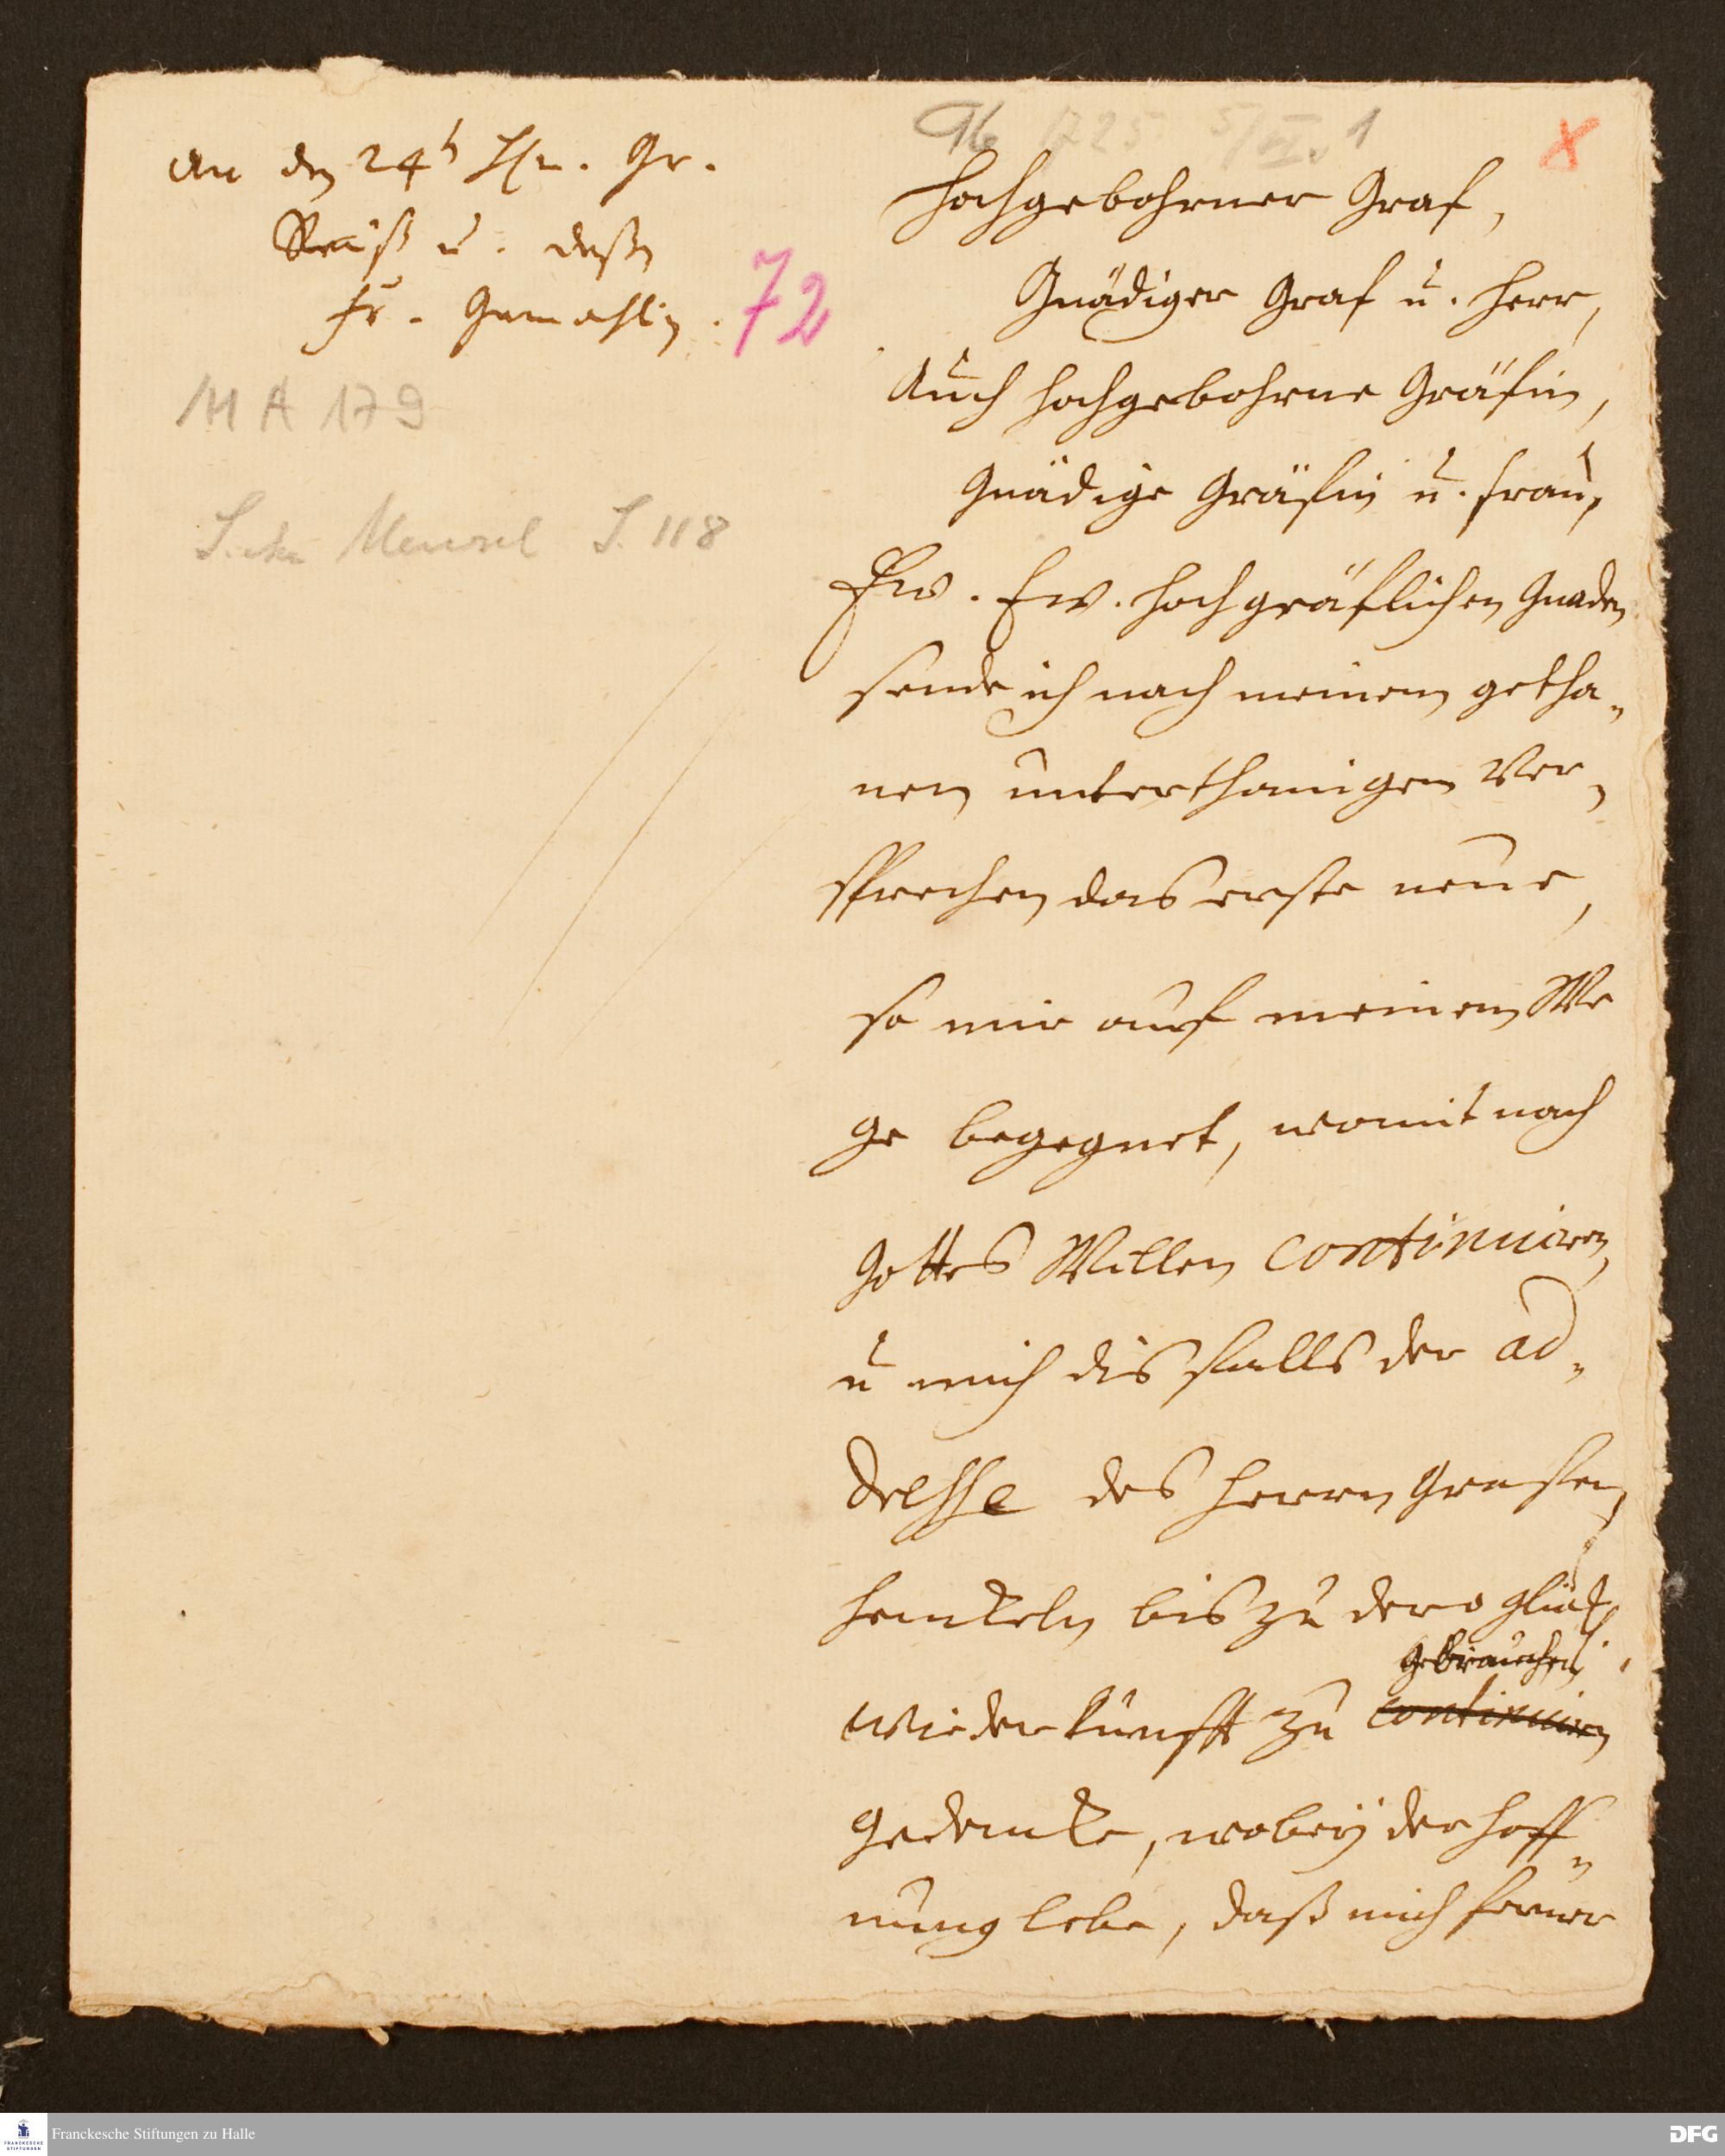 An den 24st Hn. Gr.
Reuß u. deßen
Fr. Gemahlin.
72
MA 179
Siehe Meusel S. 118
96 1725 5/VI. 1
Hochgebohrner Graf,
Gnädiger Graf u. Herr,
Auch Hochgebohrne Gräfin,
Gnädige Gräfin u. Frau,
Ew. Ew. Hochgräflichen Gnaden
sende ich nach meinem getha-
nen unterthanigen Ver-
sprechen das erste neue,
so mir auf meinem We
ge begegnet, womit nach
Gottes Willen continuiren,
u mich disfalls der ad-
dresse des Herrn Grafen
Henkeln bis zu dero glückl.
gebrauchen
wiederkunfft zu continuiren
gedencke, wobey der Hoff-
nung lebe, daß mich ferner
Franckesche Stiftungen zu Halle
DFG